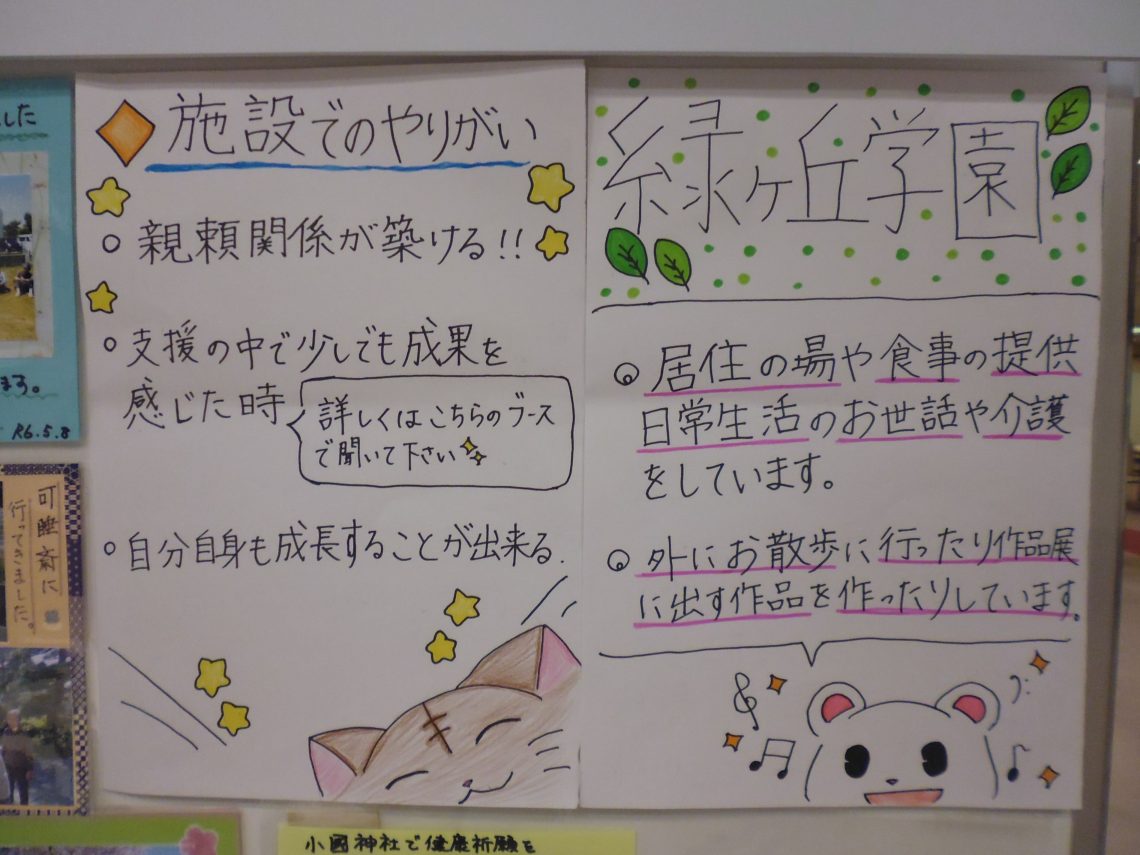 した
ます。
R6.5.8
可睡斎に
行ってきました。
施設でのやりがい
○ 親頼関係が築ける!!
○ 支援の中で少しでも成果を
感じた時
詳しくはこちらのブース
で聞いて下さい
○ 自分自身も成長することが出来る.
緑ヶ丘学園
◎ 居住の場や食事の提供
日常生活のお世話や介護
をしています。
◎ 外にお散歩に行ったり作品展
に出す作品を作ったりしています。
小國神社で健康祈願を